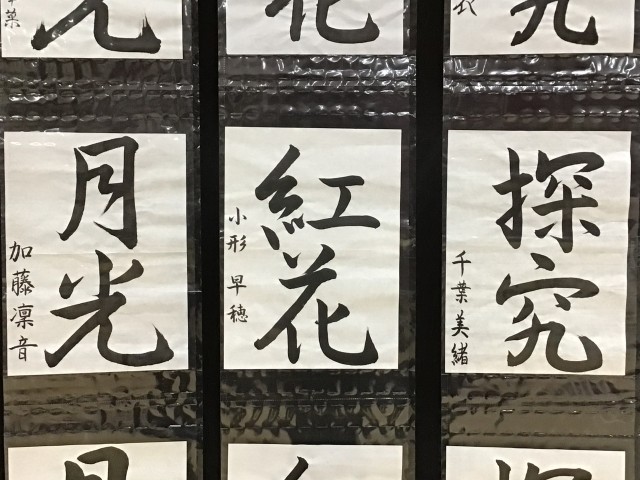 探究
千葉美緒
紅花
小形早穂
月光
加藤凛音